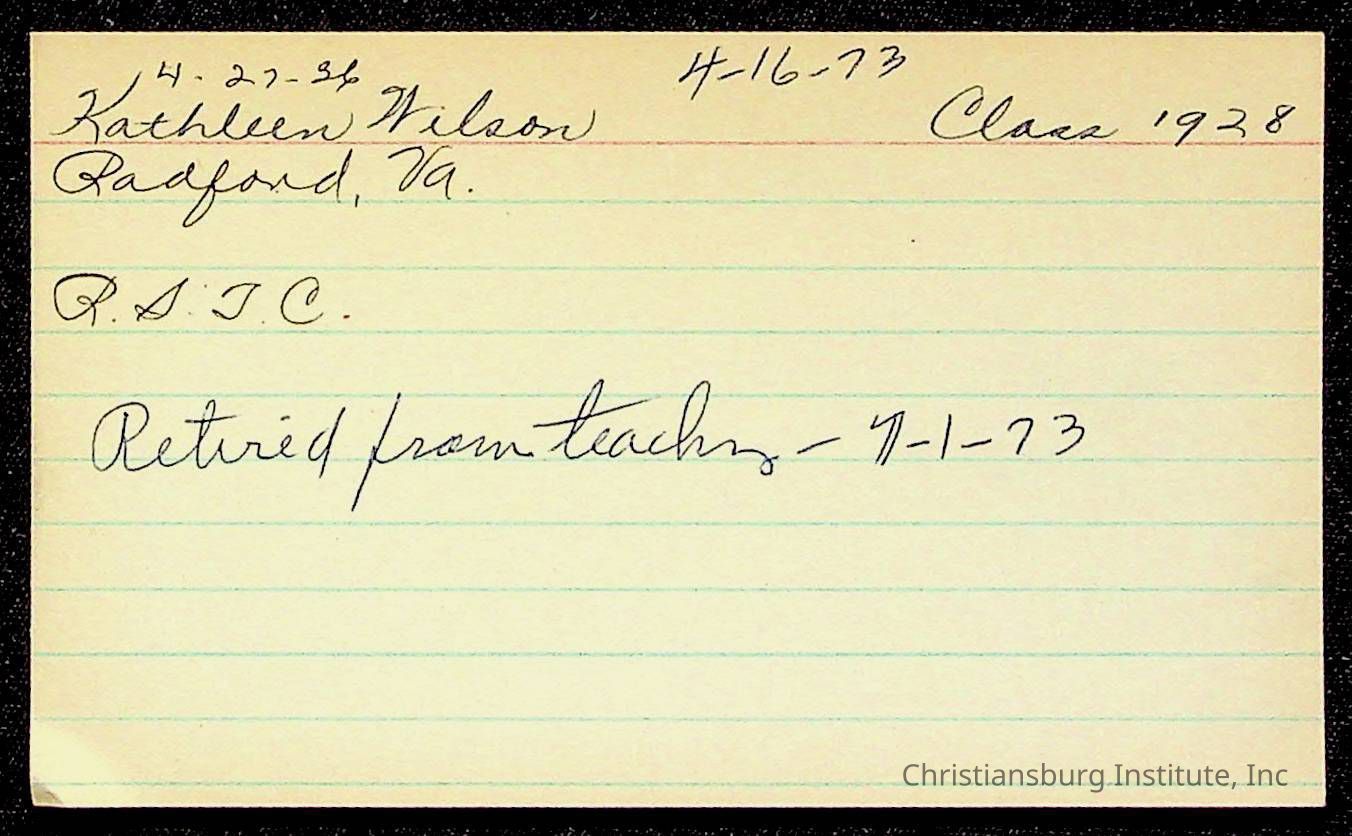 4-27-36 4-16-73
Kathleen Wilson Class 1928
Radford, Va.
R. S. T. C.
Retired from teaching - 7-1-73
Christiansburg Institute, Inc